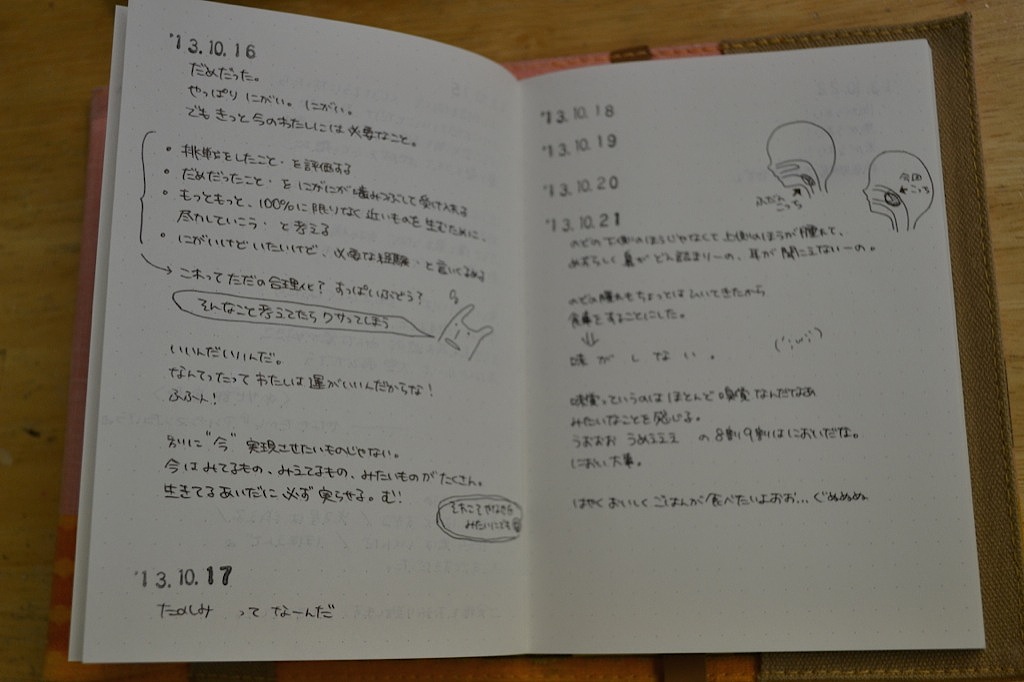 '13.10.16
だめだった。
やっぱり にがい。 にがい。
でも きっと 今のわたしには 必要なこと。
• 挑戦をしたこと・を評価する
• だめだったこと・を にがにが噛みつぶして受け入れる
• もっともっと、100%に限りなく近いものを生むために、
尽力していこう・と考える
• にがいけどいたいけど、必要な経験・と言いくるめる
→ これってただの合理化? すっぱいぶどう?
そんなこと考えてたら クサってしまう
いいんだいいんだ。
なんてったって わたしは 運がいいんだからな!
ふふん!
別に "今" 実現させたいものじゃない。
今は みてるもの、みえてるもの、みたいものが たくさん。
生きてるあいだに 必ず 実らせる。む!
'13.10.17
たのしみ って なーんだ
'13.10.18
'13.10.19
'13.10.20
ふだん
こっち
今回
こっち
'13.10.21
のどの下側のほうじゃなくて 上側のほうが腫れて、
めずらしく 鼻が どん詰まりーの、耳が 聞こえないーの。
のどの腫れもちょっとは ひいてきたから
食事をすることにした。
⇓
味 が し な い 。
(';ω;`)
味覚っていうのは ほとんど 嗅覚 なんだなあ
みたいなことを 感じる。
うおおお うめえええ の 8割9割は においだな。
におい大事。
はやく おいしく ごはんが 食べたいよおお... ぐぬぬぬぬ